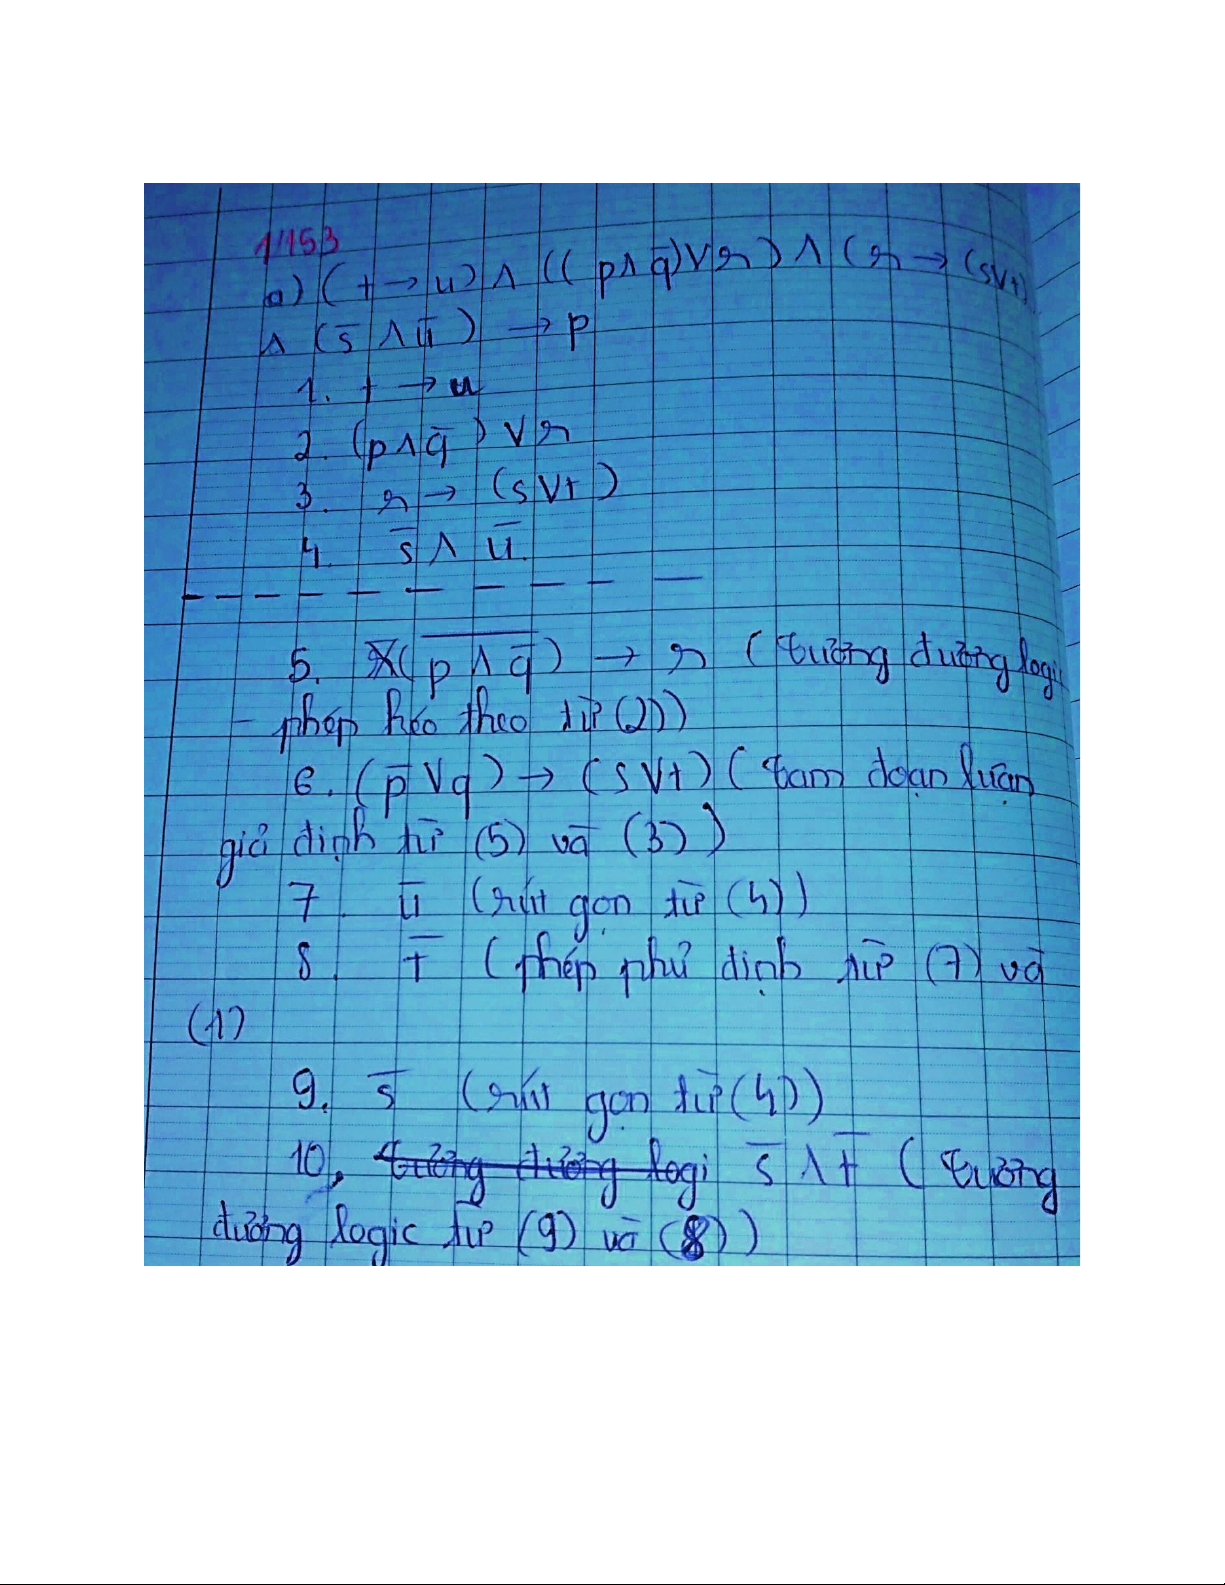 1/153
a) (t → u) ∧ ((p ∧ q̅) ∨ r) ∧ (r → (s∨t)
∧ (s̅ ∧ u̅) → p
1. t → u
2. (p ∧ q̅) ∨ r
3. r → (s ∨ t)
4. s̅ ∧ u̅.
5. (p̅ ̅∧̅ ̅q̅) → r (tương đương logic
- phép kéo theo từ (2))
6. (p̅ ∨ q) → (s ∨ t) (tam đoạn luận
giả định từ (5) và (3))
7. u̅ (rút gọn từ (4))
8. t̅ (phép phủ định từ (7) và
(1)
9. s̅ (rút gọn từ (4))
10, tương đương logi s̅ ∧ t̅ (tương
đương logic từ (9) và (8))